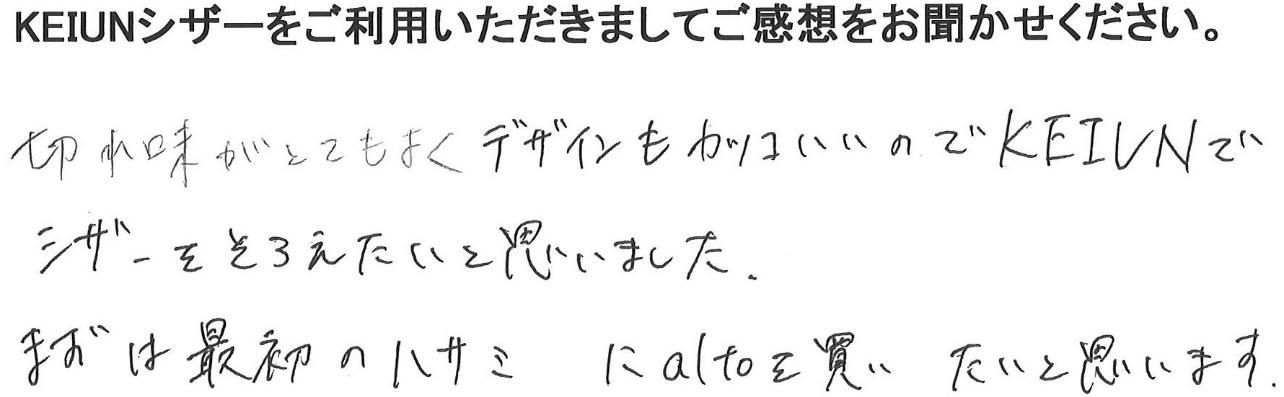 KEIUNシザーをご利用いただきましてご感想をお聞かせください。
切れ味がとてもよくデザインもカッコいいのでKEIUNで
シザーをそろえたいと思いました.
まずは最初のハサミにaltoを買いたいと思います.